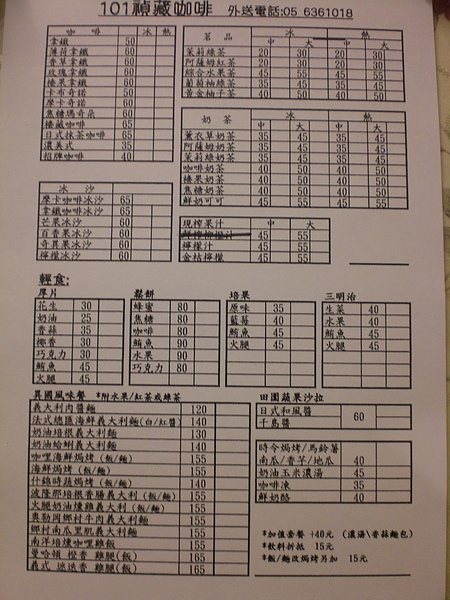 101禎藏咖啡 外送電話:05 6361018
咖 啡 冰 熱
拿鐵 50
薄荷拿鐵 60
香草拿鐵 60
玫瑰拿鐵 60
榛果拿鐵 60
卡布奇諾 60
摩卡奇諾 60
焦糖瑪奇朵 60
禎藏咖啡 65
日式抹茶咖啡 65
濃美式 35
招牌咖啡 40
茗品 冰 熱
中 大 中 大
茉莉綠茶 20 30 20 30
阿薩姆紅茶 20 30 20 30
綜合水果茶 45 55 45 55
葡萄柚綠茶 35 45 35 45
黃金柚子茶 40 50 40 50
奶 茶 冰 熱
中 大 中 大
薰衣草奶茶 35 45 35 45
阿薩姆奶茶 35 45 35 45
茉莉綠奶茶 35 45 35 45
咖啡奶茶 40 50 40 50
榛果奶茶 40 50 40 50
焦糖奶茶 40 50 40 50
鮮奶可可 45 55 45 55
冰 沙
摩卡咖啡冰沙 65
拿鐵咖啡冰沙 65
芒果冰沙 60
百香果冰沙 60
奇異果冰沙 60
檸檬冰沙 60
現榨果汁 中 大
45 55
檸檬汁 45 55
金桔檸檬 45 55
輕食:
厚片
花生 30
奶油 25
香蒜 35
椰香 30
巧克力 30
鮪魚 45
火腿 45
鬆餅
蜂蜜 80
焦糖 80
咖啡 80
鮪魚 90
水果 90
巧克力 80
培果
原味 35
藍莓 40
鮪魚 45
火腿 45
三明治
生菜 40
水果 40
鮪魚 45
火腿 45
異國風味餐 *附水果/紅茶或綠茶
義大利肉醬麵 120
法式總匯海鮮義大利麵(白/紅醬) 140
奶油培根義大利麵 130
奶油蛤蜊義大利麵 140
咖哩海鮮焗烤 (飯/麵) 155
海鮮焗烤 (飯/麵) 155
什錦時蔬焗烤 (飯/麵) 140
波隆那培根香腸義大利 (飯/麵) 155
火腿奶油燻雞義大利 (飯/麵) 155
奧勒岡鄉村牛肉義大利麵 155
鄉村南瓜里肌義大利麵 155
南洋培燻咖哩雞飯 155
曼哈頓 橙香 雞腿(飯) 165
義式 迷迭香 雞腿(飯) 165
田園蔬果沙拉
日式和風醬 60
千島醬
時令焗烤/馬鈴薯
南瓜/香芋/地瓜 40
奶油玉米濃湯 45
咖啡凍 35
鮮奶酪 40
*加值套餐 +40元 (濃湯\香蒜麵包)
*飲料折抵 15元
*飯/麵改焗烤另加 15元